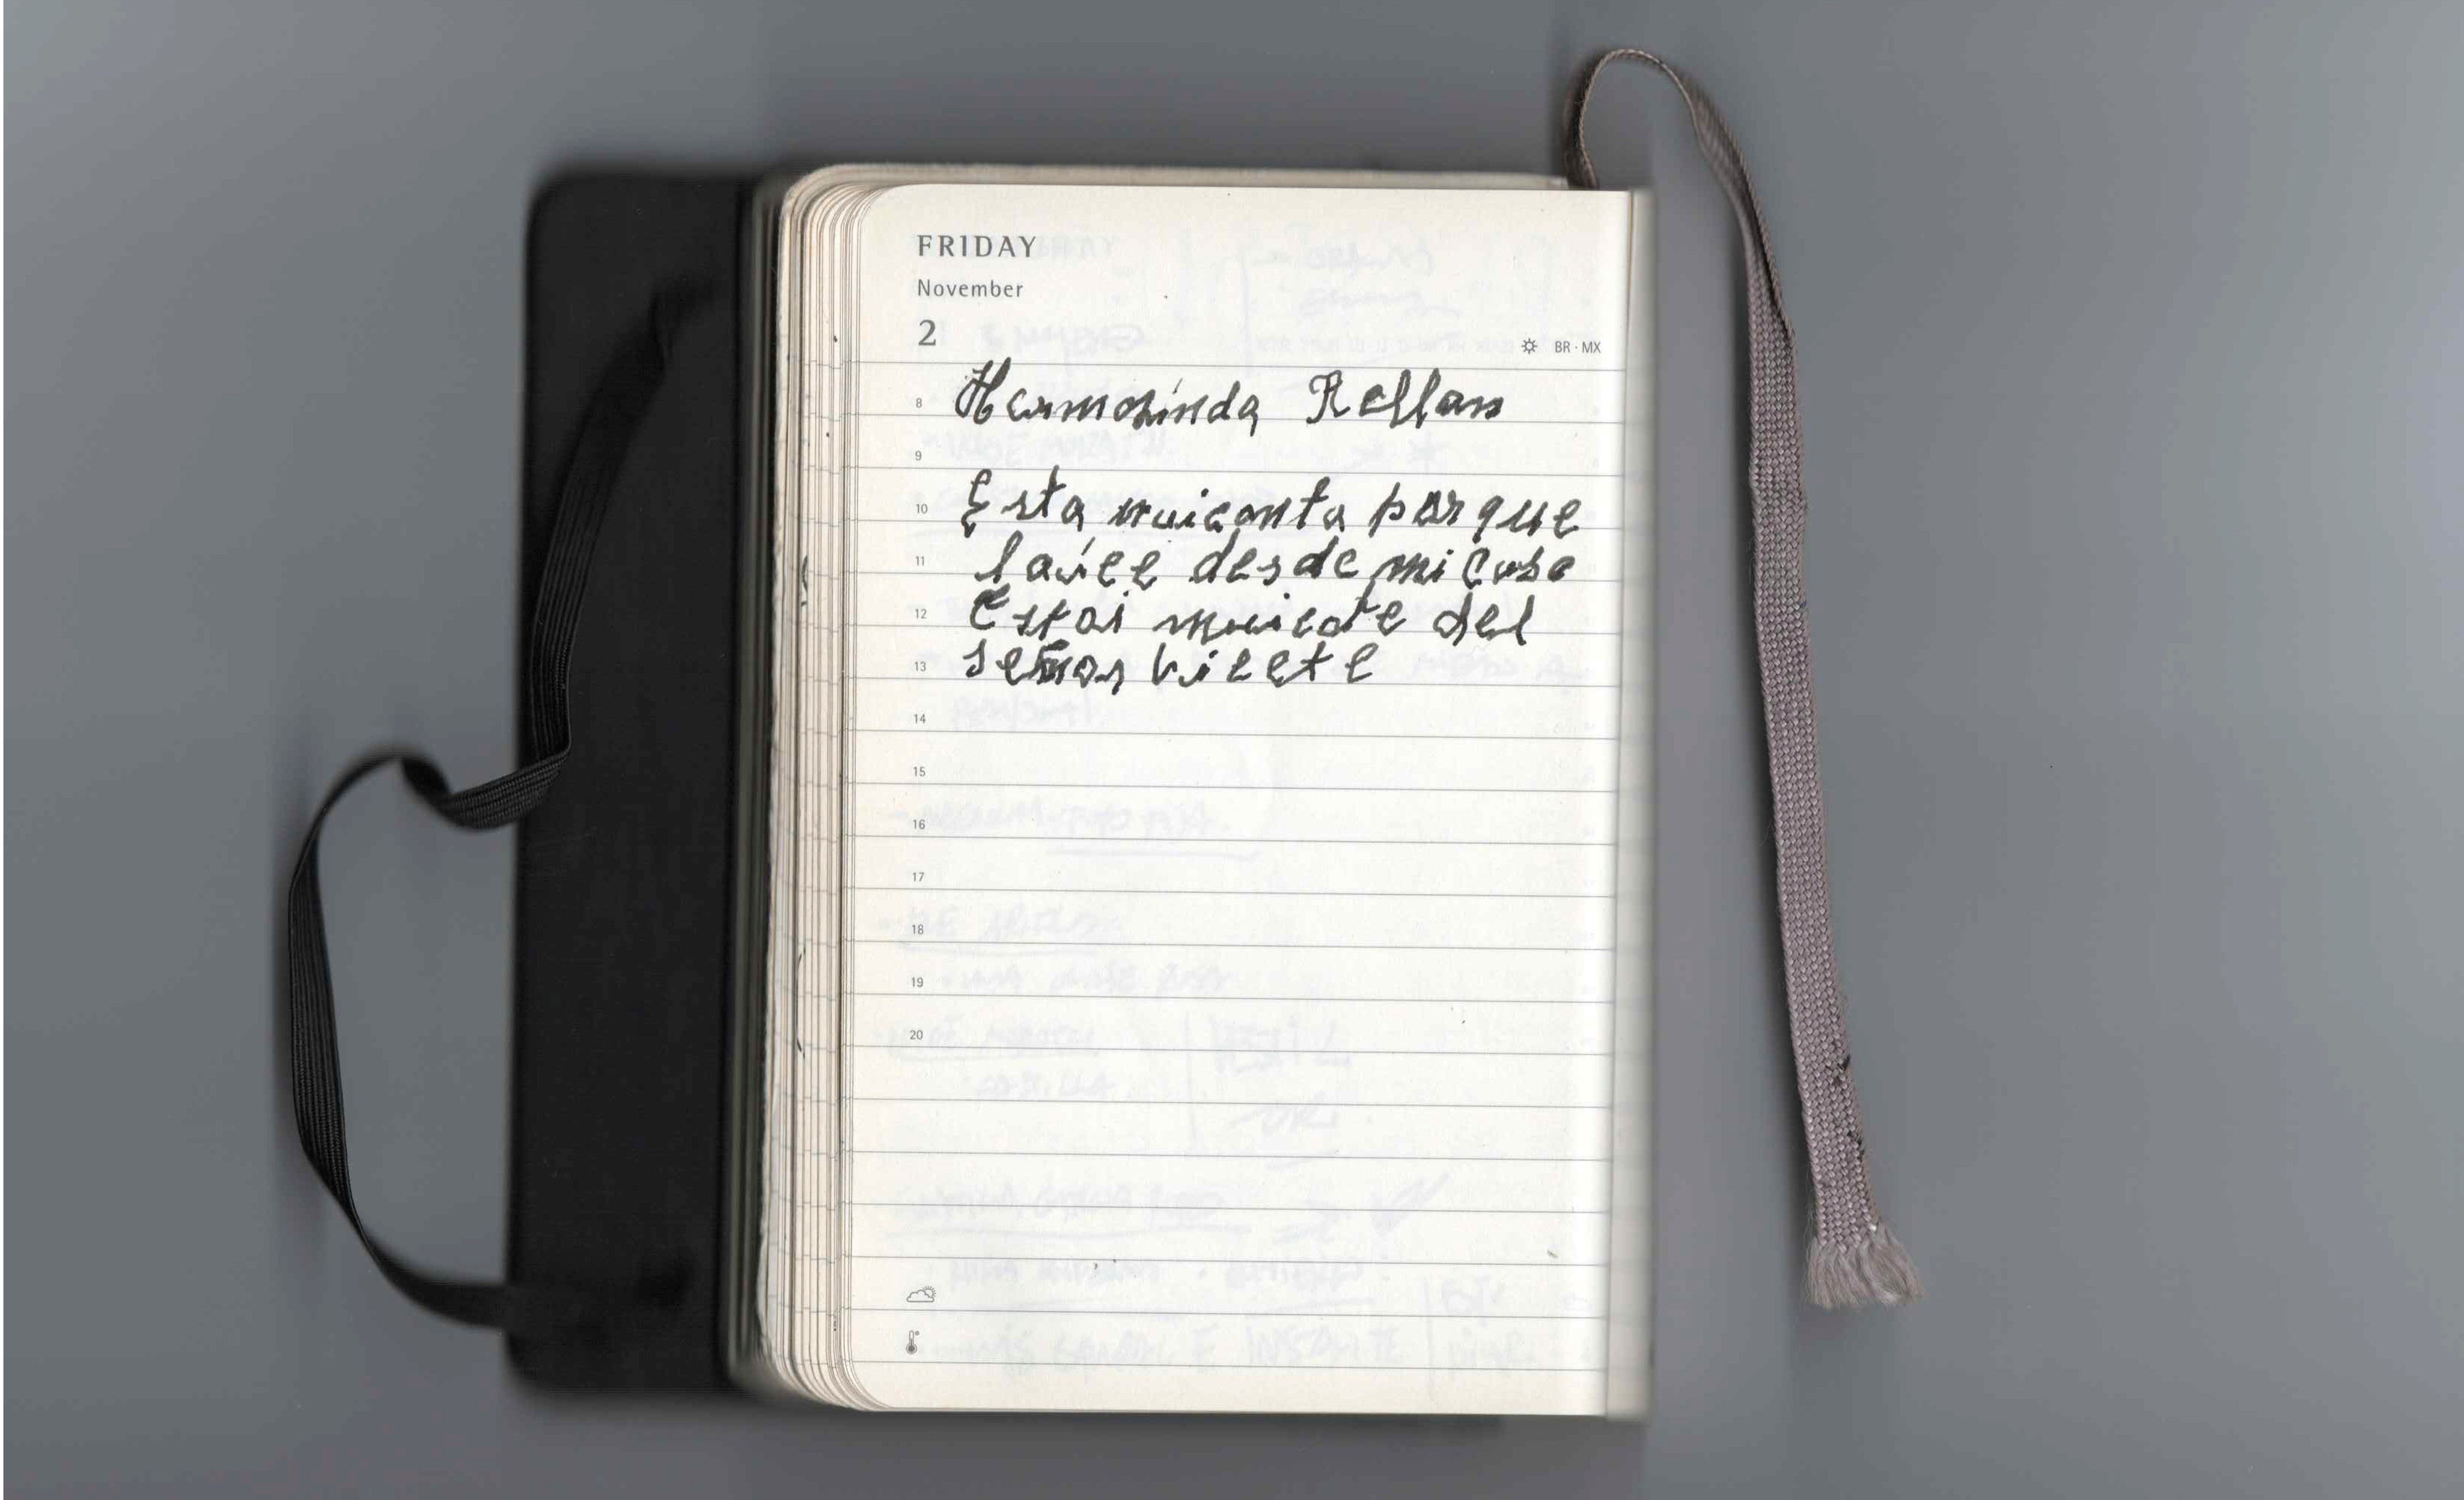 FRIDAY
November
2
BR · MX
8
Hermosinda Rellan
9
10 Esta muiconta porque
11 laicee desde mi casa
12 Estoi muicote del
13 señor Vicete
14
15
16
17
18
19
20